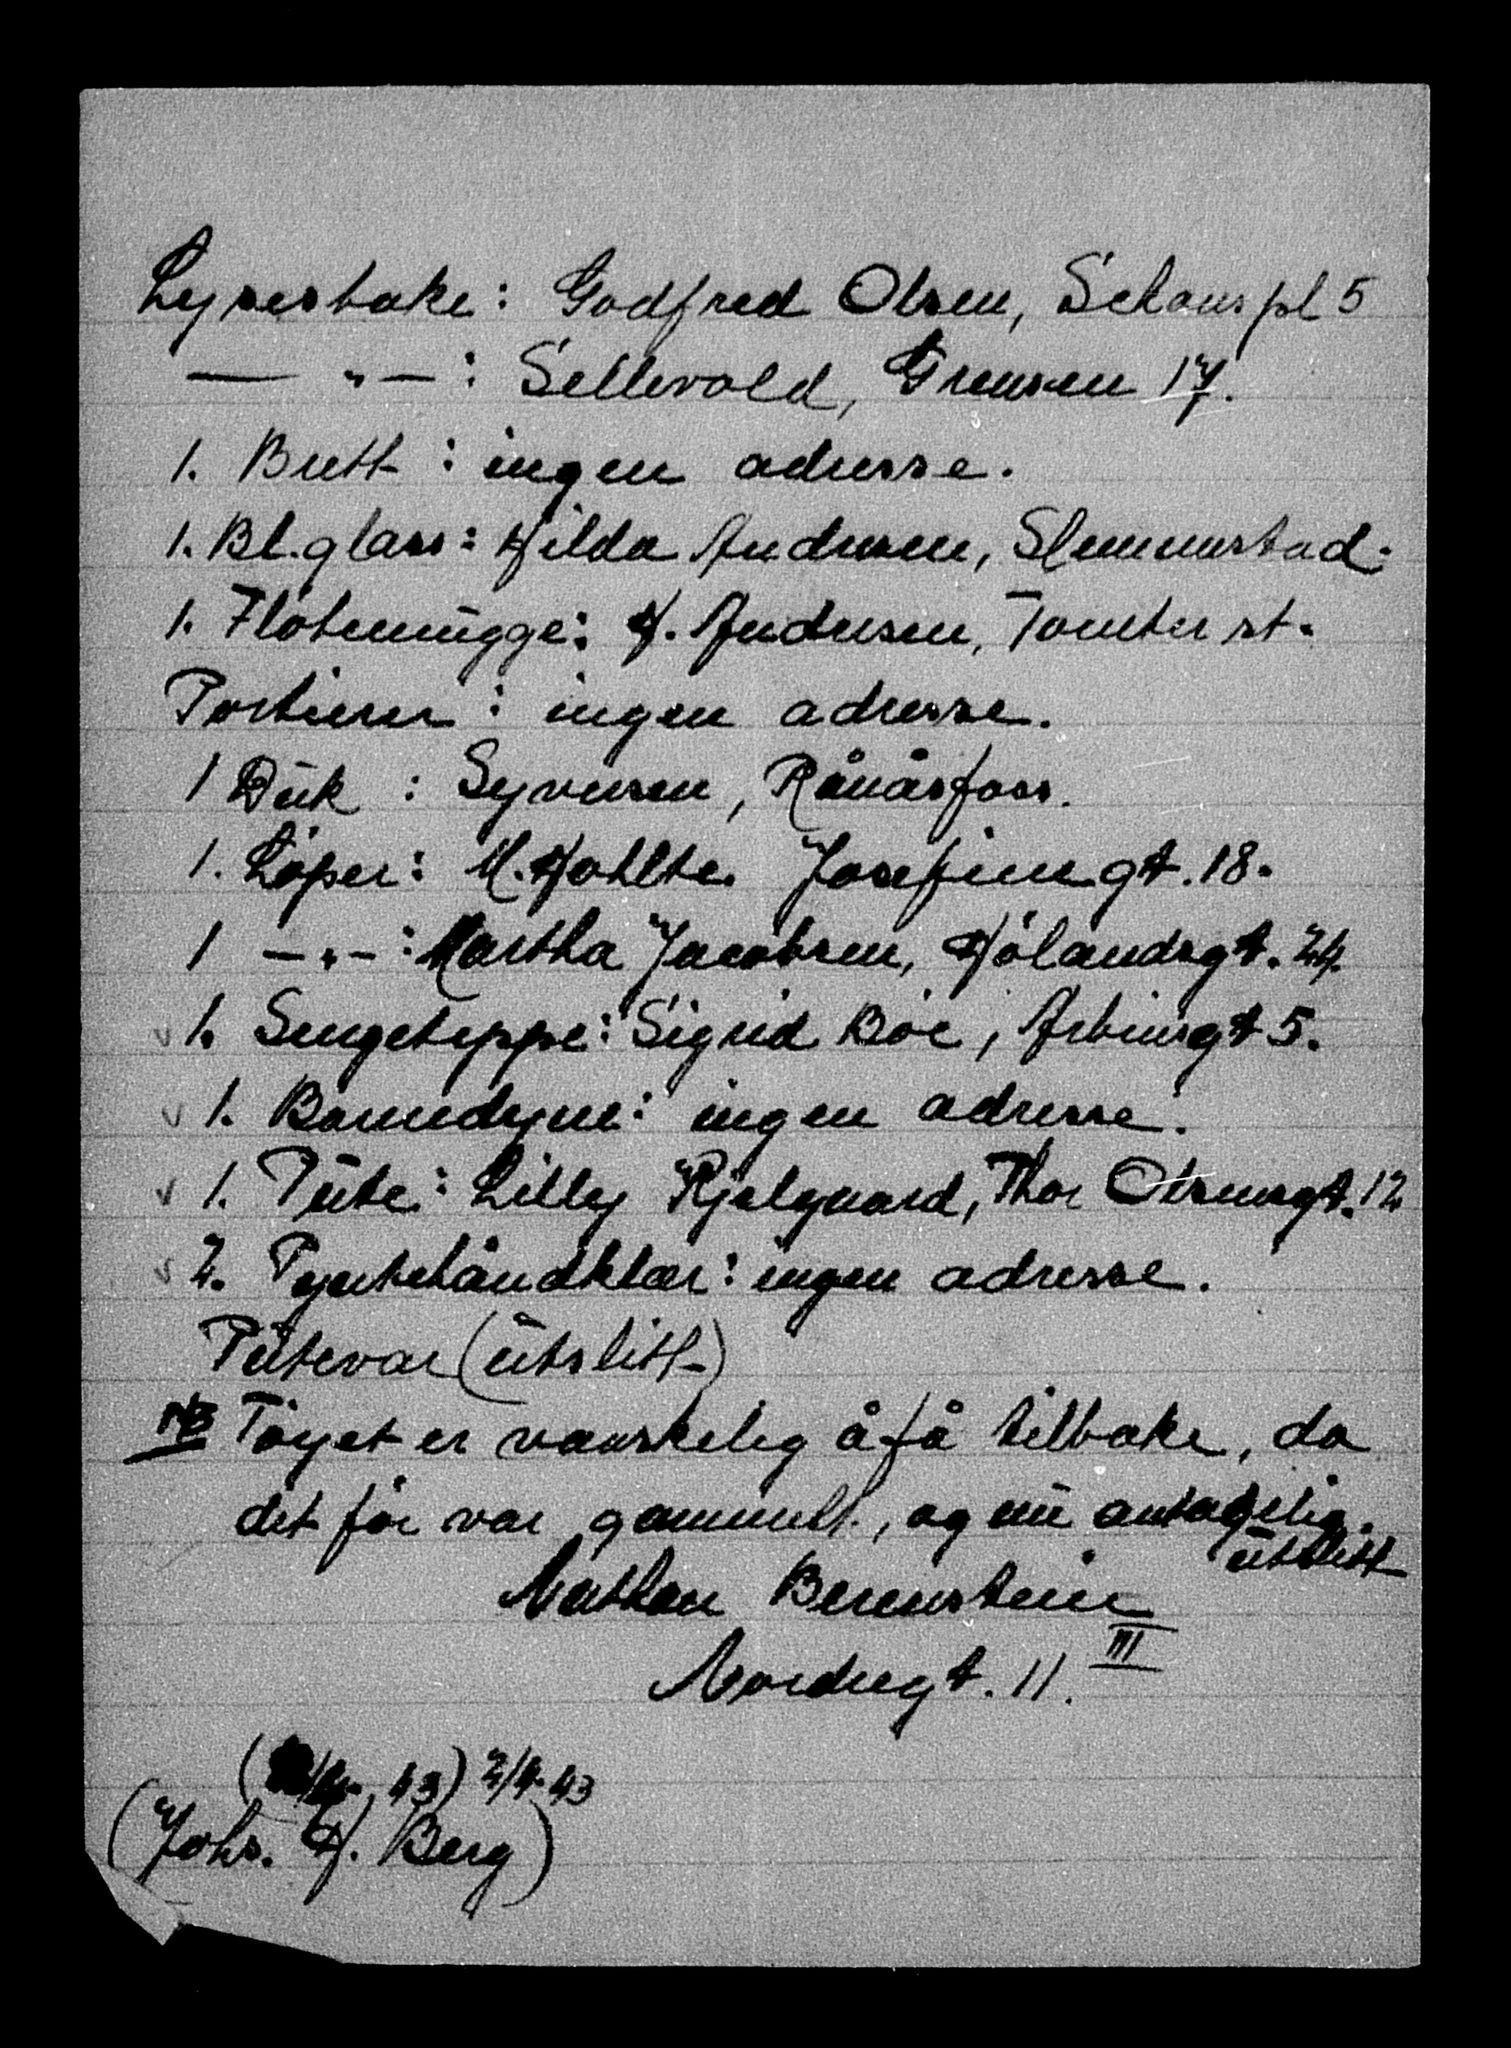 Lysestake: Godfred Olsen, Schous pl 5
— " — : Sellevold, Grensen 17.
1. Brett : ingen adresse.
1. Bl.glass: Hilda Andresen, Slemmestad.
1. Fløtemugge: H. Andresen, Tomter st.
Portierer : ingen adresse.
1 Duk : Syversen, Rånåsfoss.
1. Löper: M. Hohlte. Josefinegt. 18.
1 — " — : Martha Jacobsen, Hølandsgt. 24.
v 1. Sengeteppe: Sigrid Böe, Arbinsgt 5.
v 1. Barnedyne: ingen adresse.
v 1. Pute: Lilly Kjelgaard, Thor Olsensgt. 12
v 2. Pyntehåndklær: ingen adresse.
Putevar (utslitt)
NB Töyet er vanskelig å få tilbake, da
det för var gammelt, og nu antagelig
utslitt
Nathan Berenstein
Nordregt. 11. III
( /4. 43) 2/4. 43
(Johs. H. Berg)